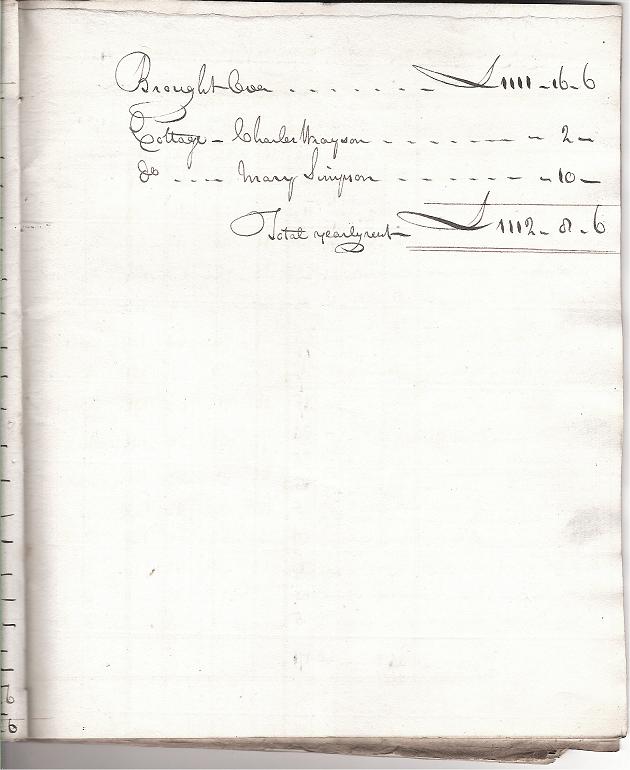 Brought Over . . . . . . . £1111 - 16 - 6
Cottage - Charles Wrayson - - - - - - - - 2 -
Do - - - - Mary Simpson - - - - - - - - 10 -
Total yearly rent £1112 - 8 - 6